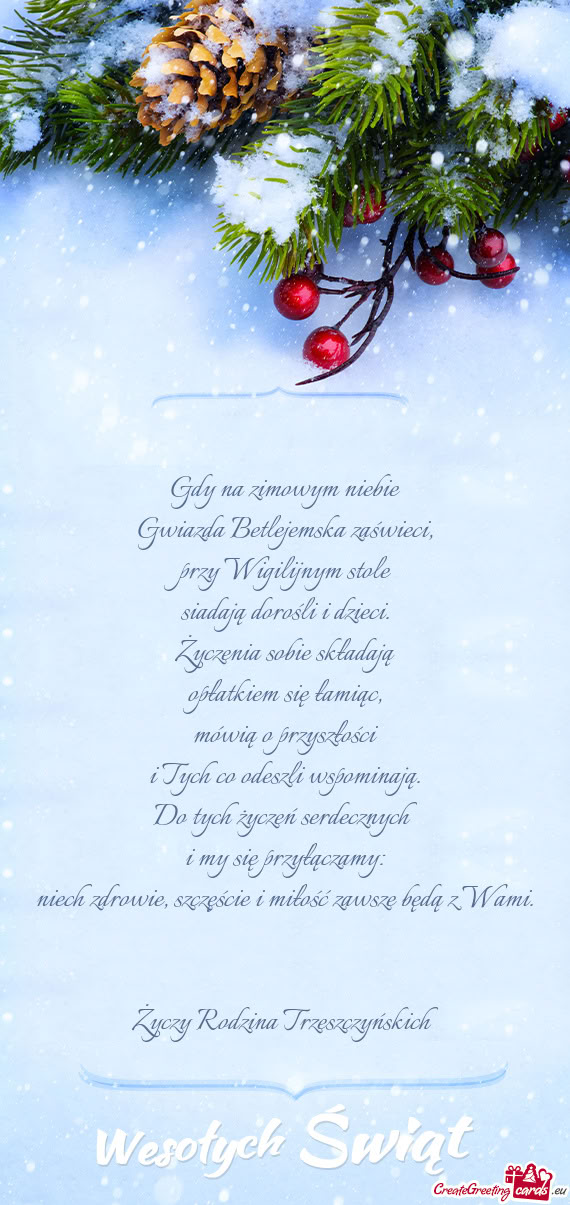 Gdy na zimowym niebie
Gwiazda Betlejemska zaświeci,
przy Wigilijnym stole
siadają dorośli i dzieci.
Życzenia sobie składają
opłatkiem się łamiąc,
mówią o przyszłości
i Tych co odeszli wspominają.
Do tych życzeń serdecznych
i my się przyłączamy:
niech zdrowie, szczęście i miłość zawsze będą z Wami.
Życzy Rodzina Trzeszczyńskich
Wesołych Świąt
CreateGreeting cards .eu